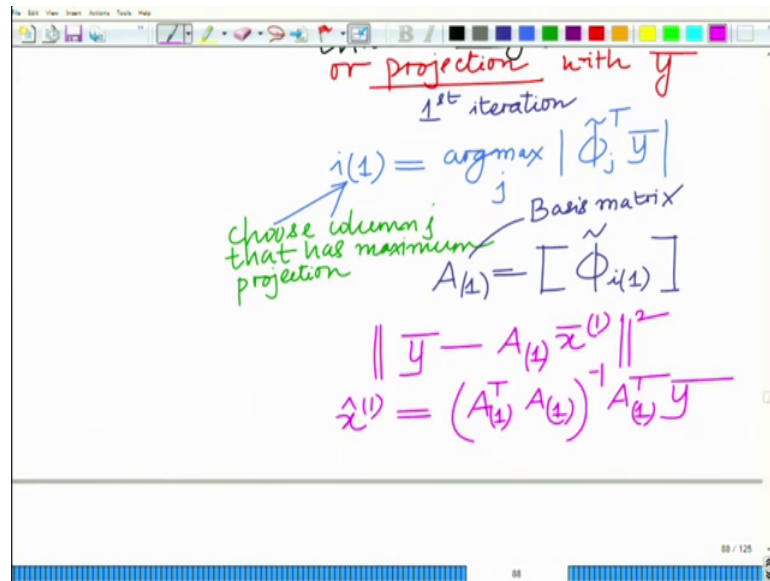 File Edit View Insert Actions Tools Help
or projection with y̅
1st iteration
i(1) = argmax_j | Φ̃_j^T y̅ |
choose column j
that has maximum
projection
Basis matrix
A_(1) = [ Φ̃_i(1) ]
|| y̅ − A_(1) x̅^(1) ||²
x̂^(1) = (A_(1)^T A_(1))^−1 A_(1)^T y̅
88 / 125
88